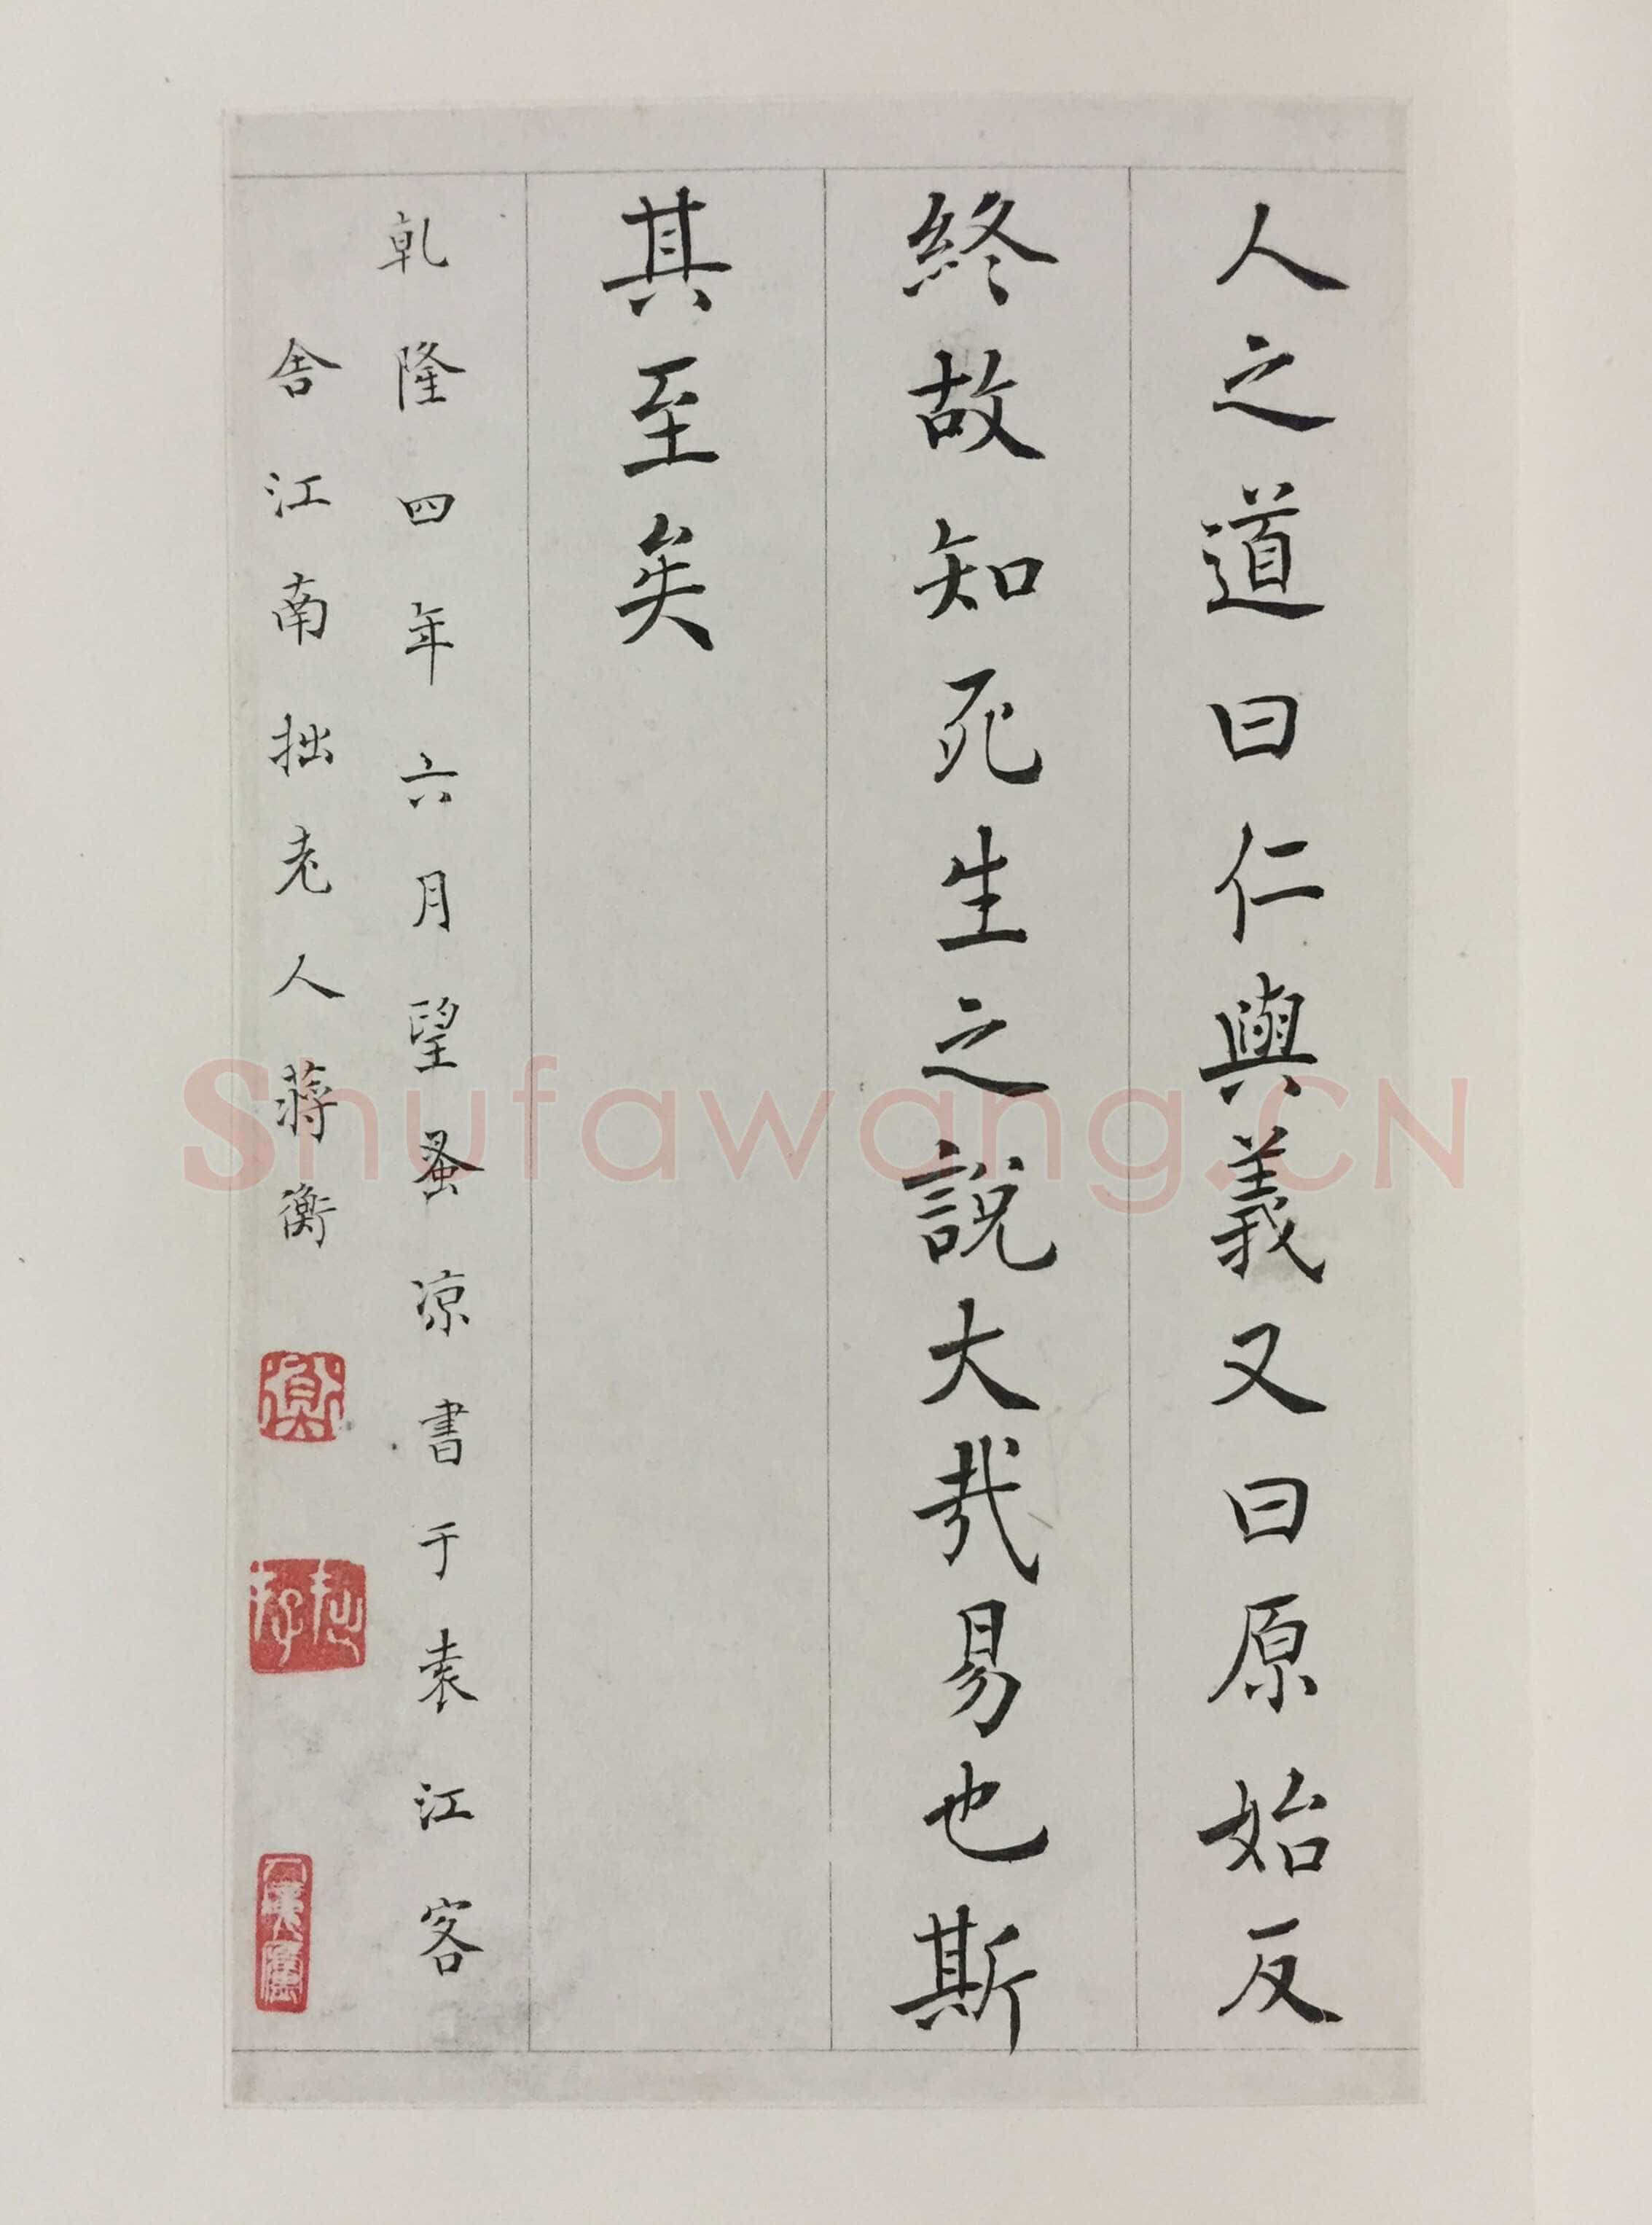 人之道曰仁與義又曰原始反
終故知死生之說大哉易也斯
其至矣
乹隆四年六月望蚤凉書于袁江客
舍江南拙老人蔣衡
衡
拙存
Shufawang.CN